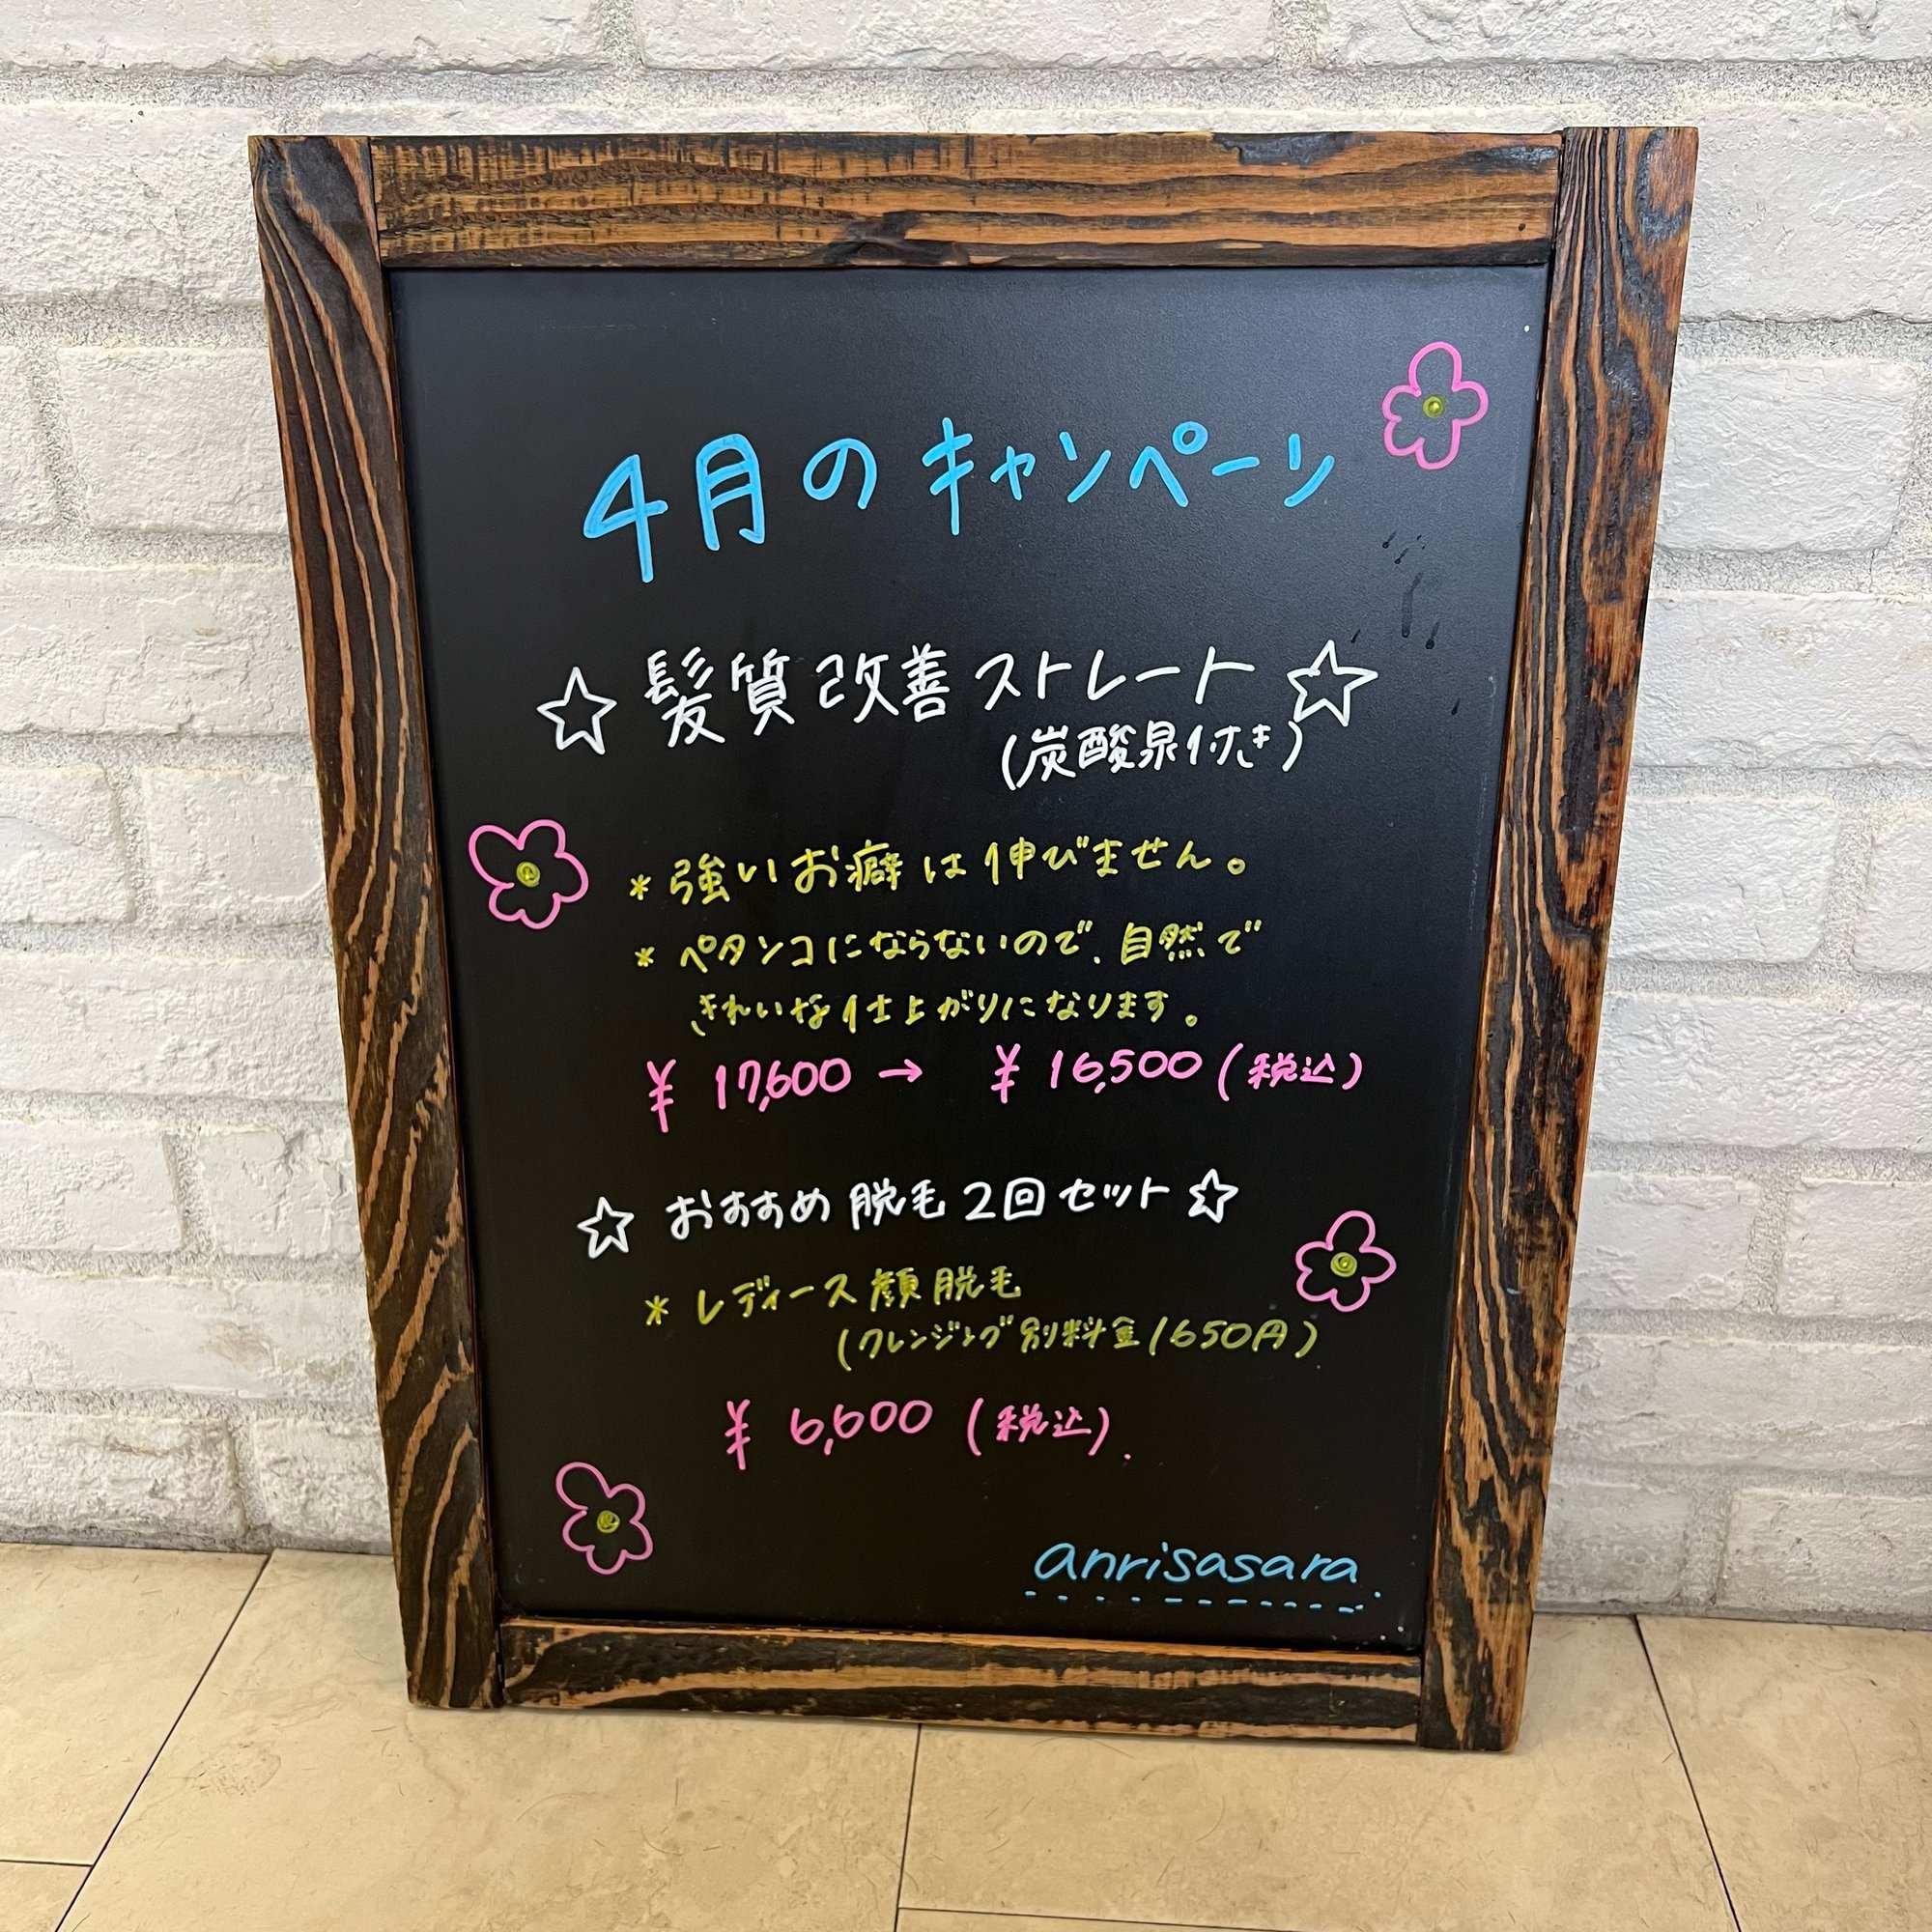 4月のキャンペーン
☆ 髪質改善ストレート ☆
(炭酸泉付き)
* 強いお癖は伸びません。
* ペタンコにならないので、自然で
きれいな仕上がりになります。
¥ 17,600 → ¥ 16,500 (税込)
☆ おすすめ 脱毛 2回 セット ☆
* レディース 顔 脱毛
(クレンジング別料金1650円)
¥ 6,600 (税込).
anrisasara